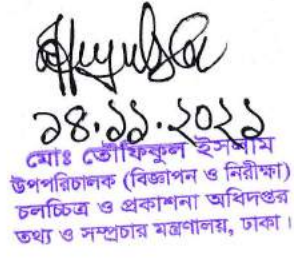 ১৪.১১.২০২১
মোঃ তৌফিকুল ইসলাম
উপপরিচালক (বিজ্ঞাপন ও নিরীক্ষা)
চলচ্চিত্র ও প্রকাশনা অধিদপ্তর
তথ্য ও সম্প্রচার মন্ত্রণালয়, ঢাকা।